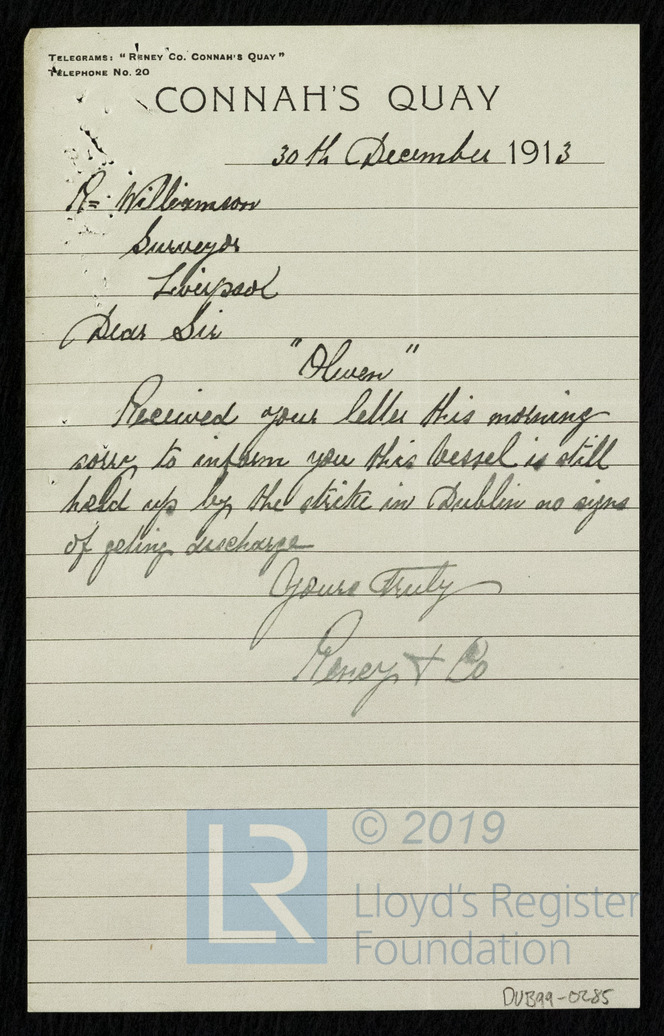 TELEGRAMS: "RENEY CO. CONNAH'S QUAY"
TELEPHONE NO. 20
CONNAH'S QUAY
30th December 1913
R= Williamson
Surveyor
Liverpool
Dear Sir
"Olwen"
Received your letter this morning
sorry to inform you this vessel is still
held up by the strike in Dublin no signs
of geting discharge
Yours Truly
Reney + Co
LR
© 2019
Lloyd's Register
Foundation
DUB99-0285